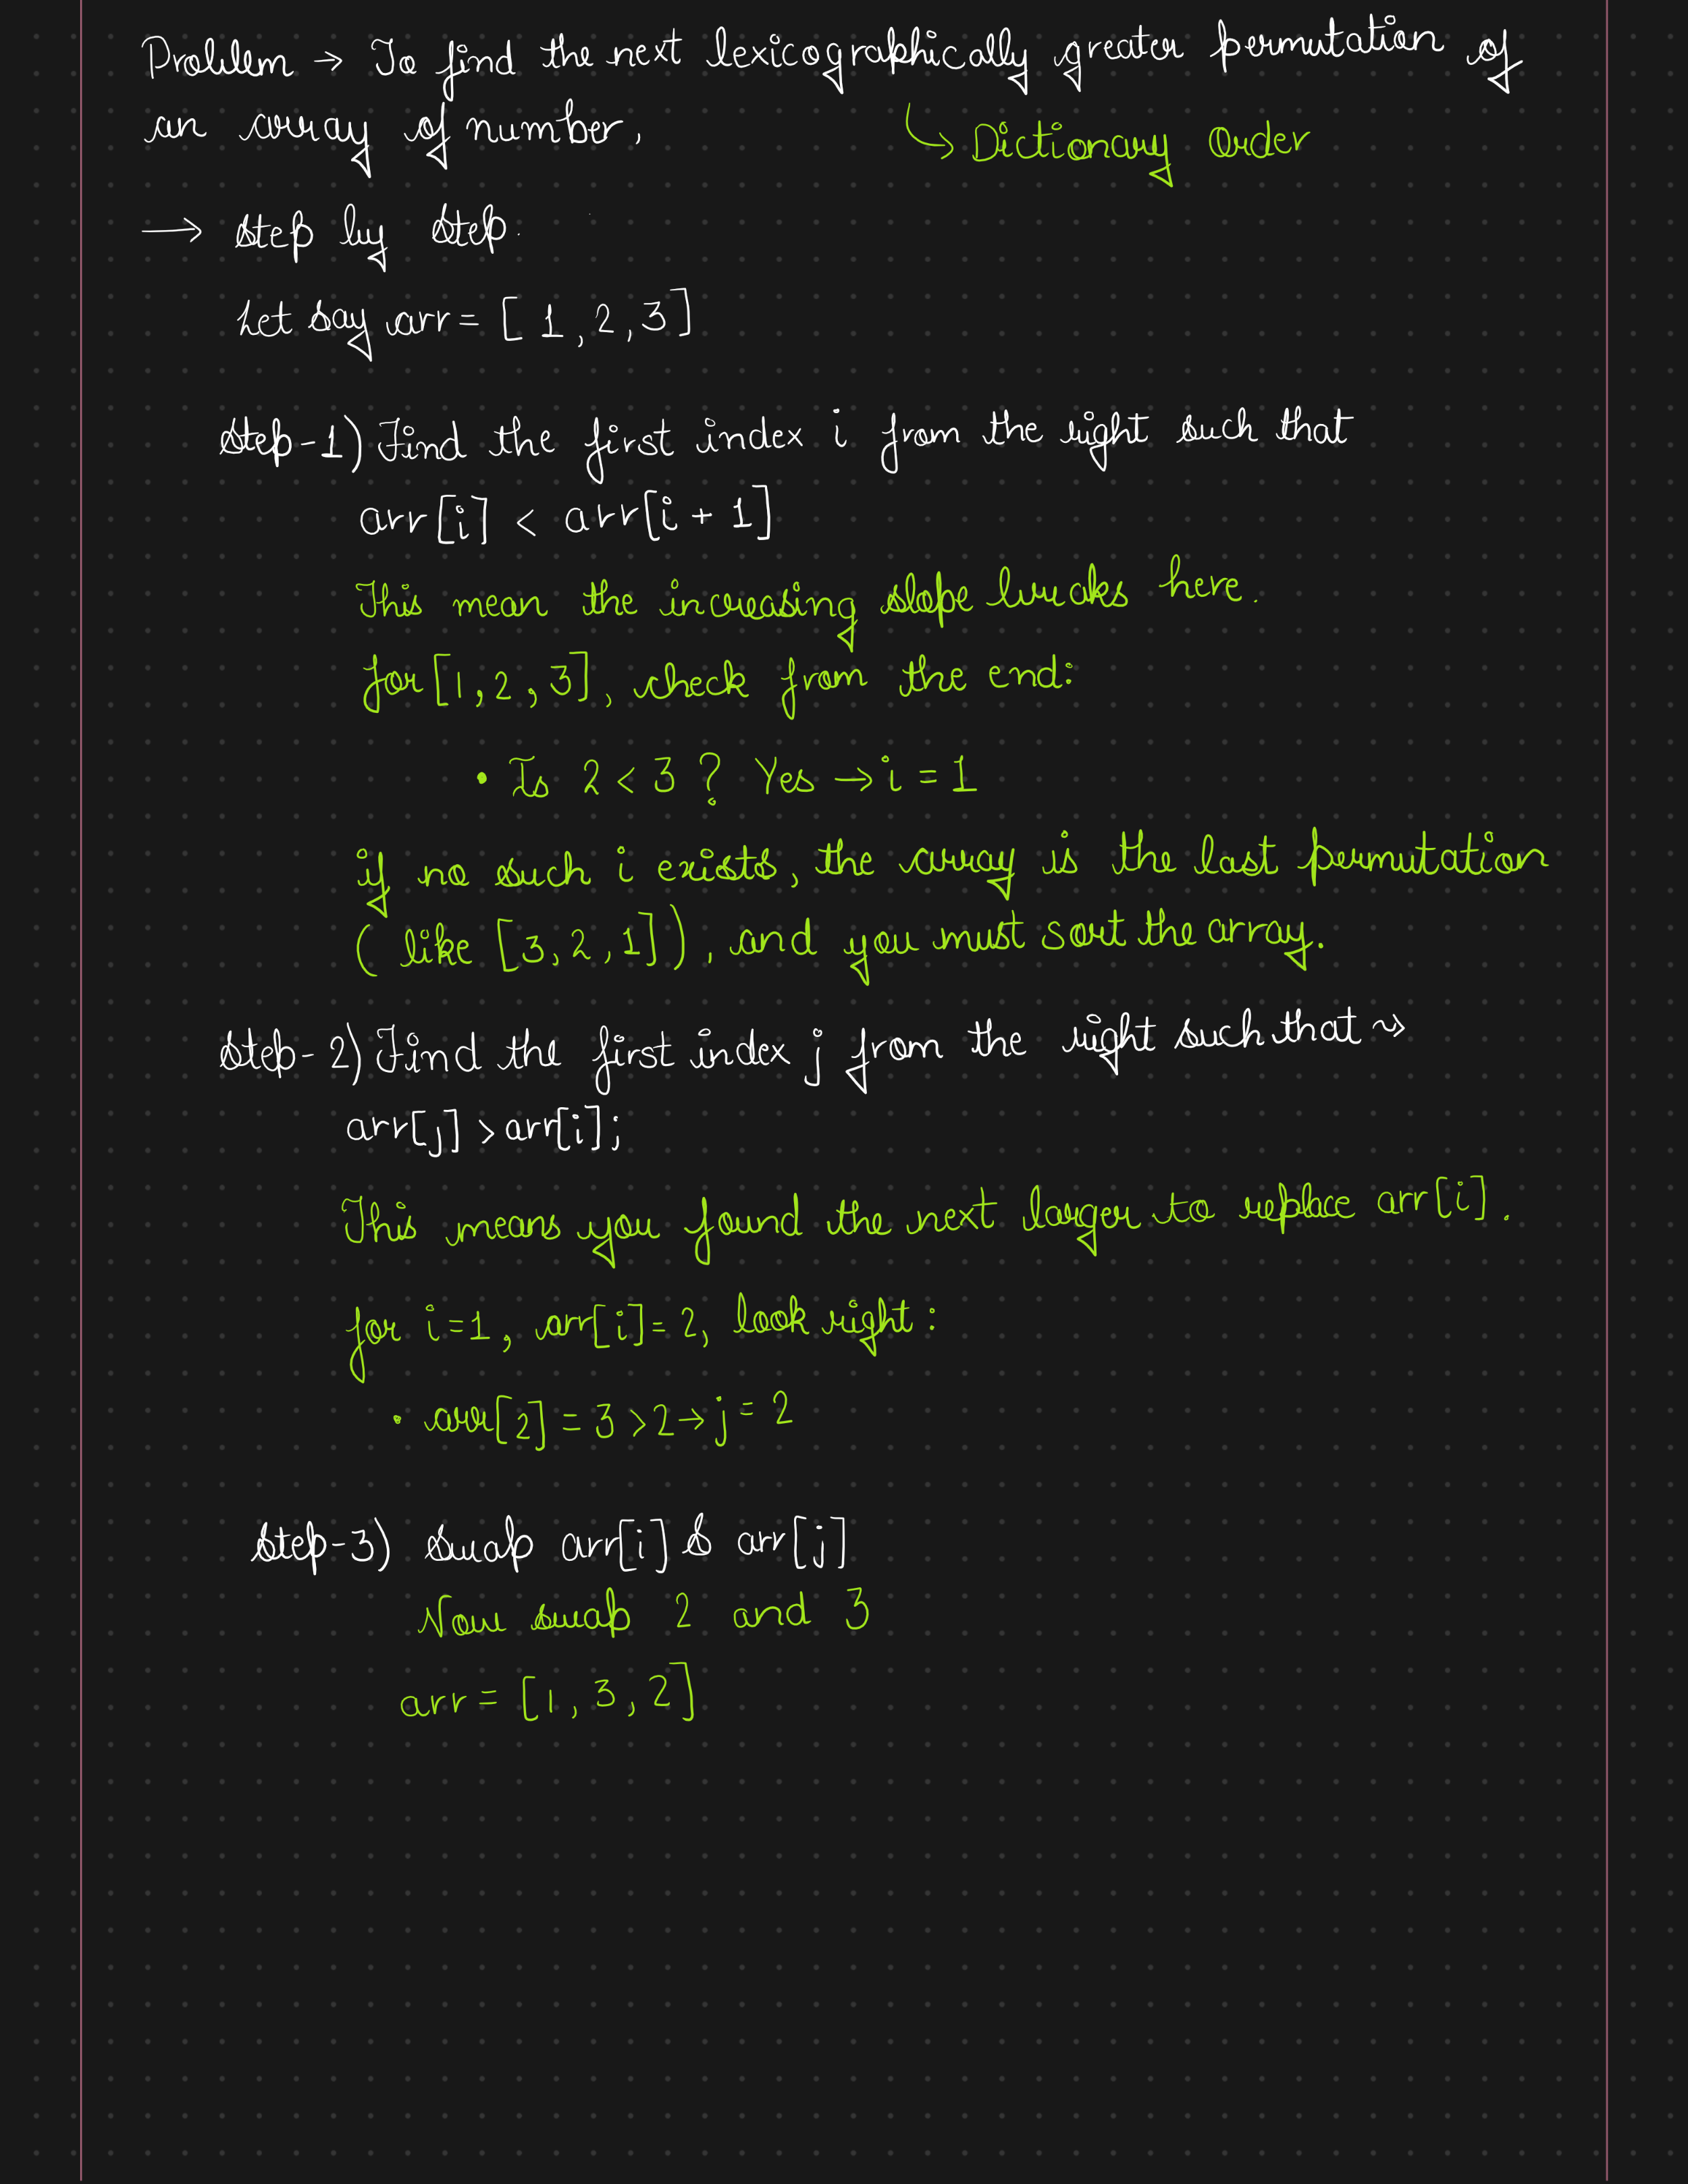 Problem → To find the next lexicographically greater permutation of
an array of number,
↳ Dictionary Order
→ Step by Step.
Let say arr = [ 1, 2, 3]
Step-1) Find the first index i from the right such that
arr[i] < arr[i + 1]
This mean the increasing slope breaks here.
for [1, 2, 3], check from the end:
• Is 2 < 3 ? Yes → i = 1
if no such i exists, the array is the last permutation
( like [3, 2, 1]), and you must sort the array.
Step-2) Find the first index j from the right such that ⇝
arr[j] > arr[i];
This means you found the next larger to replace arr[i].
for i=1, arr[i] = 2, look right:
• arr[2] = 3 > 2 → j = 2
Step-3) Swap arr[i] & arr[j]
Now swap 2 and 3
arr = [1, 3, 2]